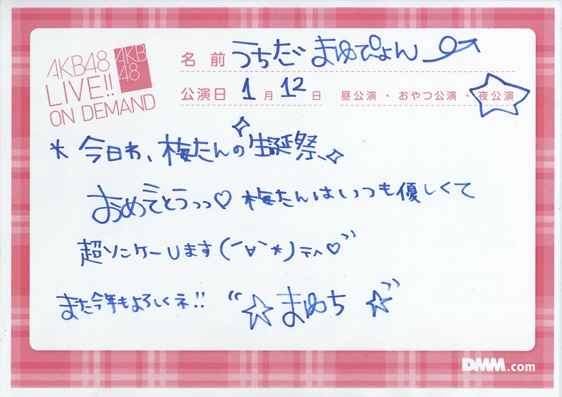 AKB48
LIVE!!
ON DEMAND
AKB
48
名前 うちだ まゆぴょん
公演日 1月12日 昼公演・おやつ公演・夜公演
* 今日わ、梅たんの生誕祭、
おめでとうっっ♡ 梅たんはいつも優しくて
超ソンケーします(´∀`*)テヘ♡"
また今年もよろしくネ!!
"☆まゆち☆"
DMM.com